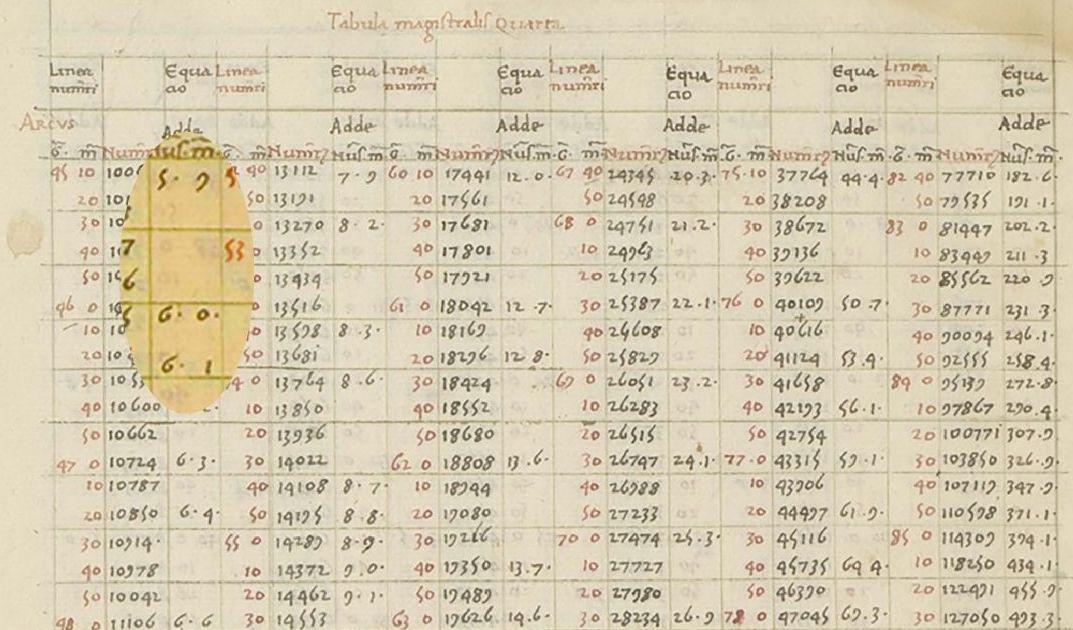 Tabula magistralis Quarta
Linea numeri Equacio Linea numeri Equacio Linea numeri Equacio Linea numeri Equacio Linea numeri Equacio Linea numeri Equacio
Arcus
Adde Adde Adde Adde Adde Adde
G̃ m̃ Numeri Nũs m̃ G̃ m̃ Numeri Nũs m̃ G̃ m̃ Numeri Nũs m̃ G̃ m̃ Numeri Nũs m̃ G̃ m̃ Numeri Nũs m̃ G̃ m̃ Numeri Nũs m̃
45 10 5·9 40 13112 7·9 60 10 17441 12·0 67 40 24345 20·3 75·10 37764 44·4 82 40 77710 182·6
20 50 13191 20 17561 50 24548 20 38208 50 79535 191·1
30 0 13270 8·2 30 17681 68 0 24751 21·2 30 38672 83 0 81447 202·2
40 7 53 0 13352 40 17801 10 24963 40 39136 10 83449 211·3
50 6 13434 50 17921 20 25175 50 39622 20 85562 220·9
46 0 5 6·0 0 13516 61 0 18042 12·7 30 25387 22·1 76 0 40109 50·7 30 87771 231·3
10 13598 8·3 10 18169 40 25608 10 40616 40 90094 246·1
20 6·1 50 13681 20 18296 12 8 50 25829 20 41124 53·4 50 92555 258·4
30 4 0 13764 8·6 30 18424 69 0 26051 23·2 30 41658 84 0 95139 272·8
40 10600 10 13850 40 18552 10 26283 40 42193 56·1 10 97867 290·4
50 10662 20 13936 50 18680 20 26515 50 42754 20 100771 307·9
47 0 10724 6·3 30 14022 62 0 18808 13·6 30 26747 24·1 77·0 43315 59·1 30 103850 326·9
10 10787 40 14108 8·7 10 18944 40 26988 10 43906 40 107119 347·9
20 10850 6·4 50 14195 8·8 20 19080 50 27233 20 44497 61·9 50 110598 371·1
30 10914 55 0 14283 8·9 30 19216 70 0 27474 25·3 30 45116 85 0 114309 394·1
40 10978 10 14372 9·0 40 19350 13·7 10 27727 40 45735 64 4 10 118250 434·1
50 10042 20 14462 9·1 50 19489 20 27980 50 46390 20 122491 455·9
48 0 11106 6·6 30 14553 63 0 19626 14·6 30 28234 26·9 78 0 47045 69·3 30 127050 493·3